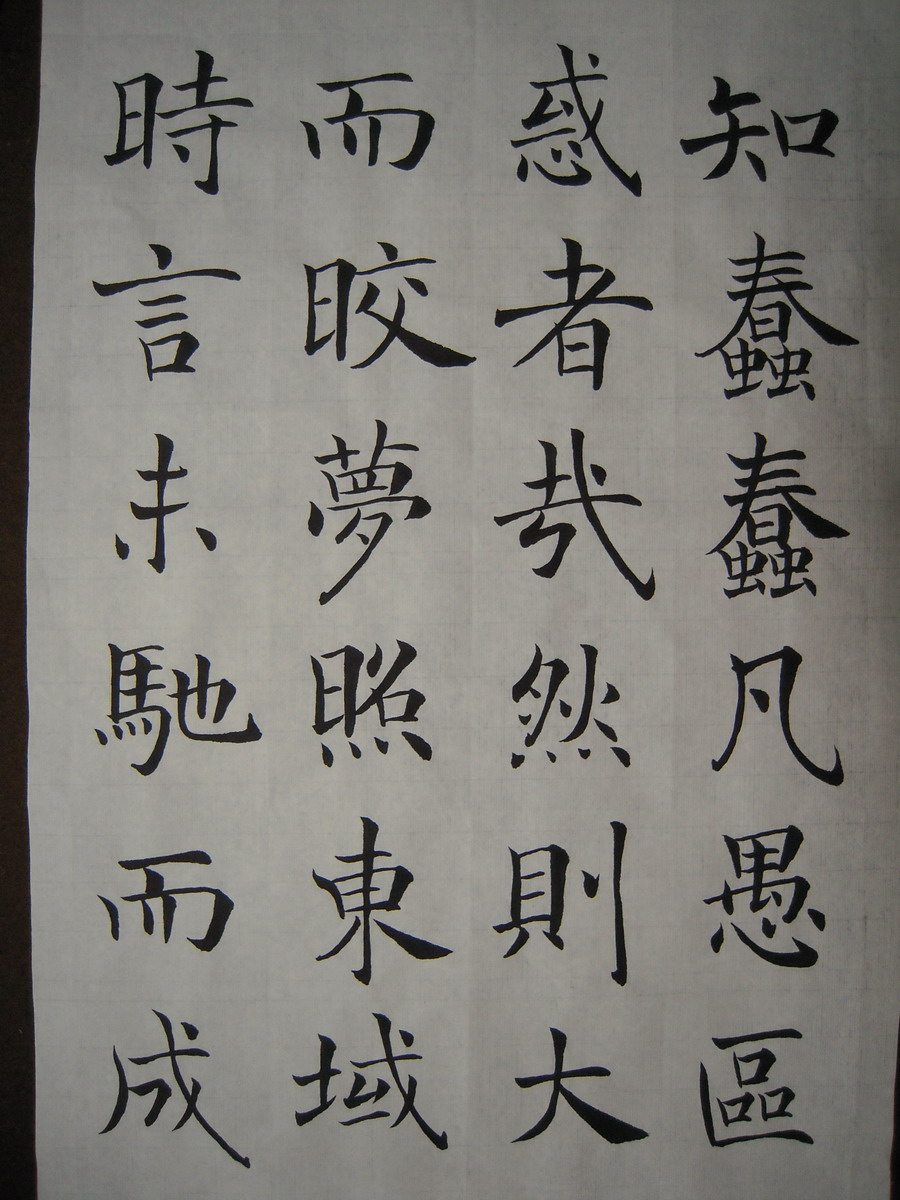 知蠢蠢凡愚區
惑者哉然則大
而晈夢照東域
時言未馳而成